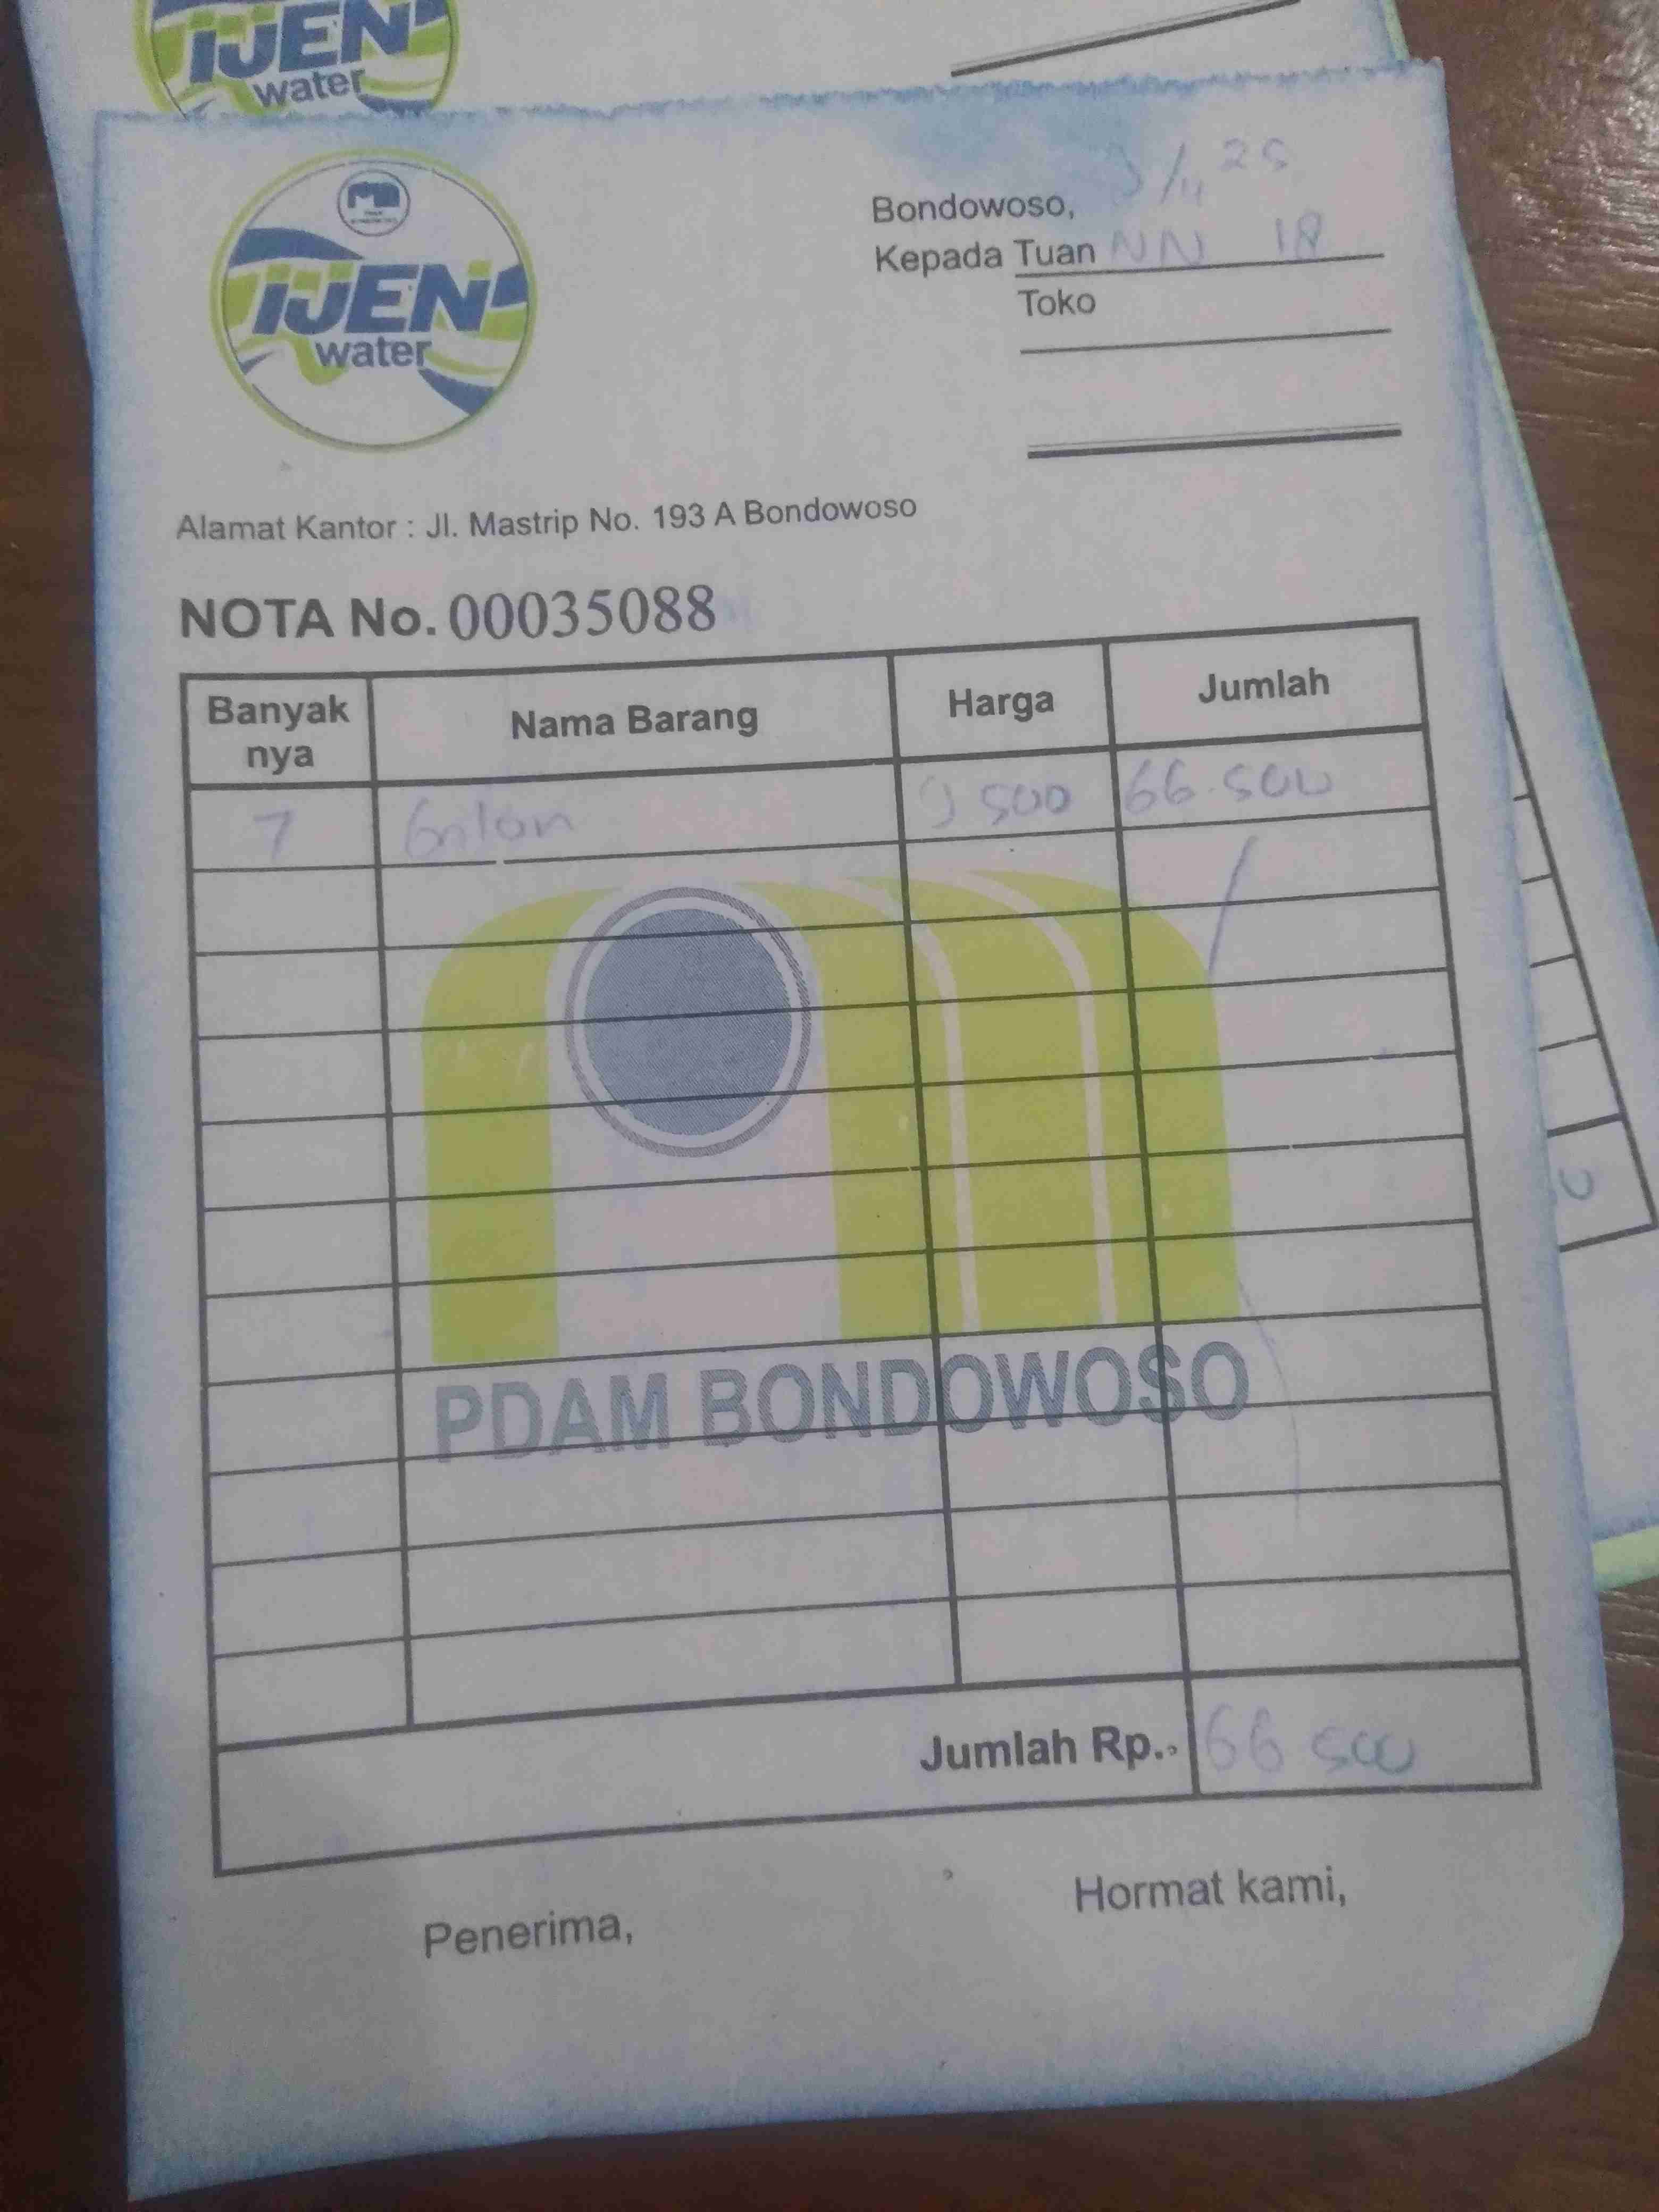 IJEN
water
IJEN
water
Bondowoso, 3/11 25
Kepada Tuan NN 18
Toko
Alamat Kantor : Jl. Mastrip No. 193 A Bondowoso
NOTA No. 00035088
Banyak nya Nama Barang Harga Jumlah
7 Galon 9 500 66.500
PDAM BONDOWOSO
Jumlah Rp. 66 500
Penerima, Hormat kami,